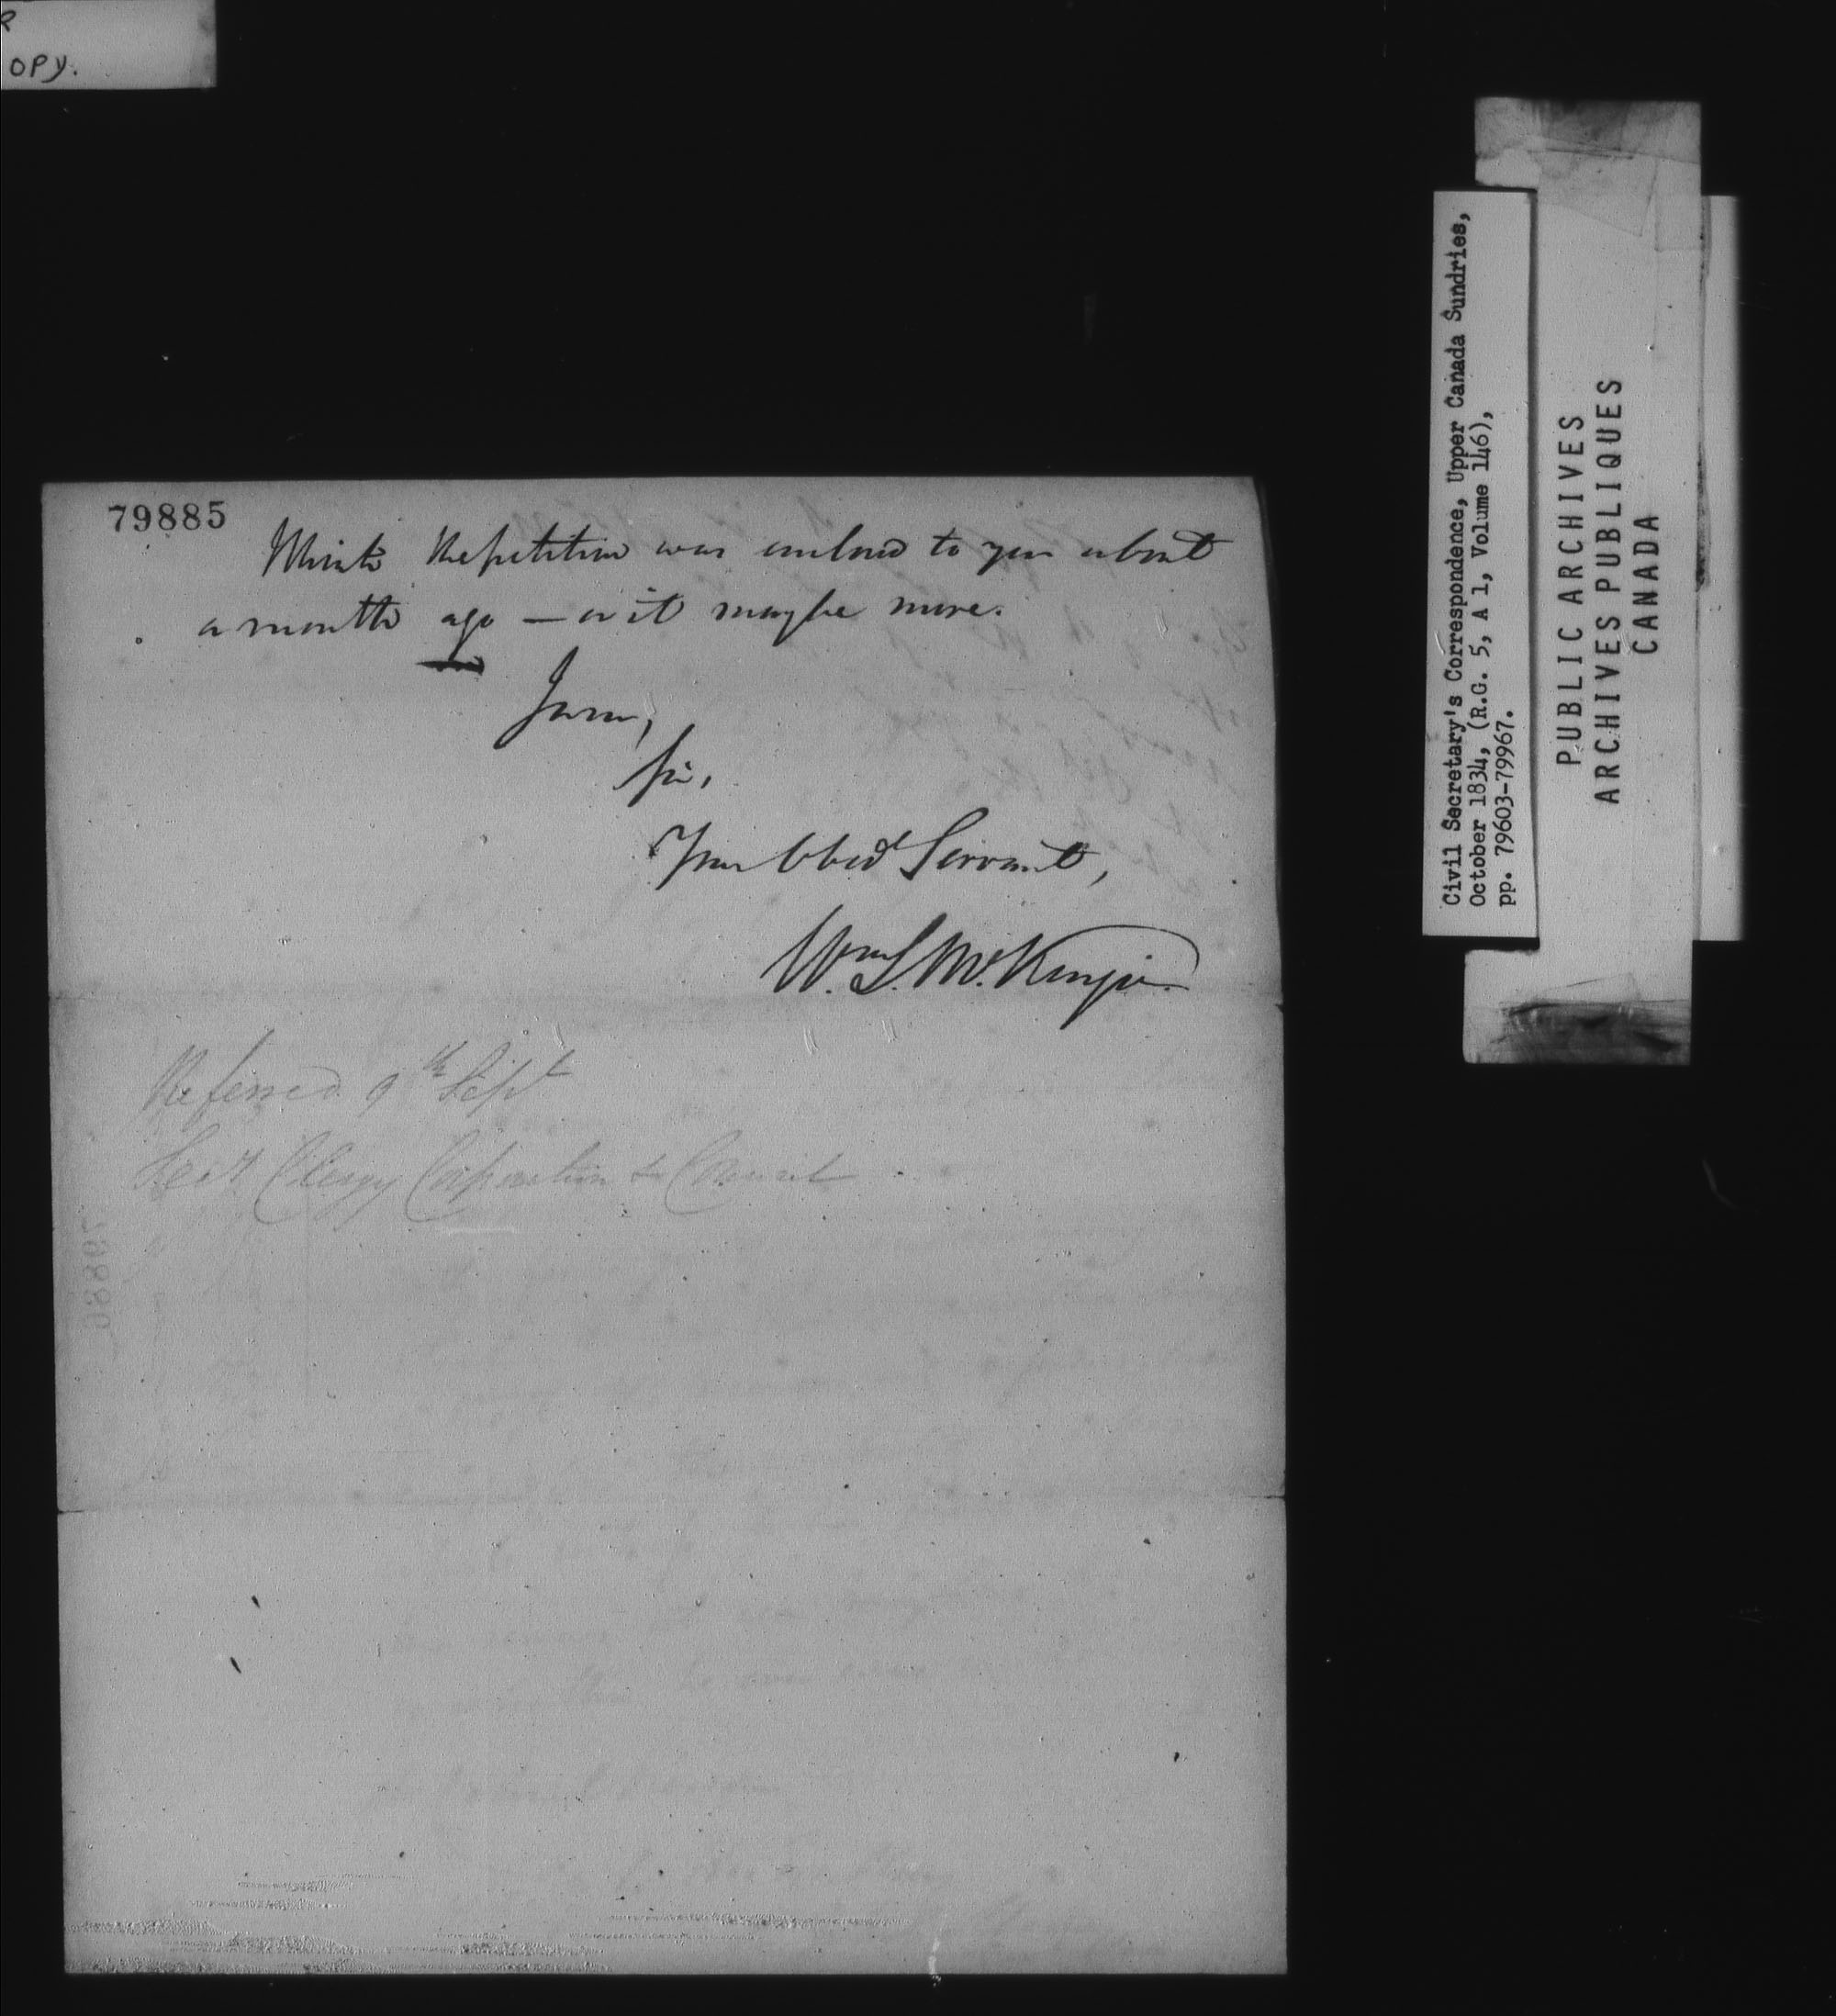 OPY.
79885
think the petition was enclosed to you about
a month ago — or it may be more.
I am,
Sir,
Your Obed Servant,
Wm. L. McKenzie.
Referred 9th Sept
Secy Clergy Corporation to Council
79886
Civil Secretary's Correspondence, Upper Canada Sundries,
October 1834, (R.G. 5, A 1, Volume 146),
pp. 79603-79967.
PUBLIC ARCHIVES
ARCHIVES PUBLIQUES
CANADA